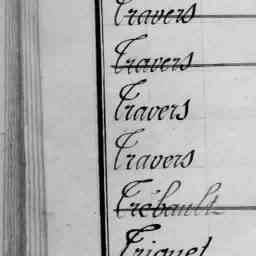 Travers
Travers
Travers
Travers
Trébault
Triquet